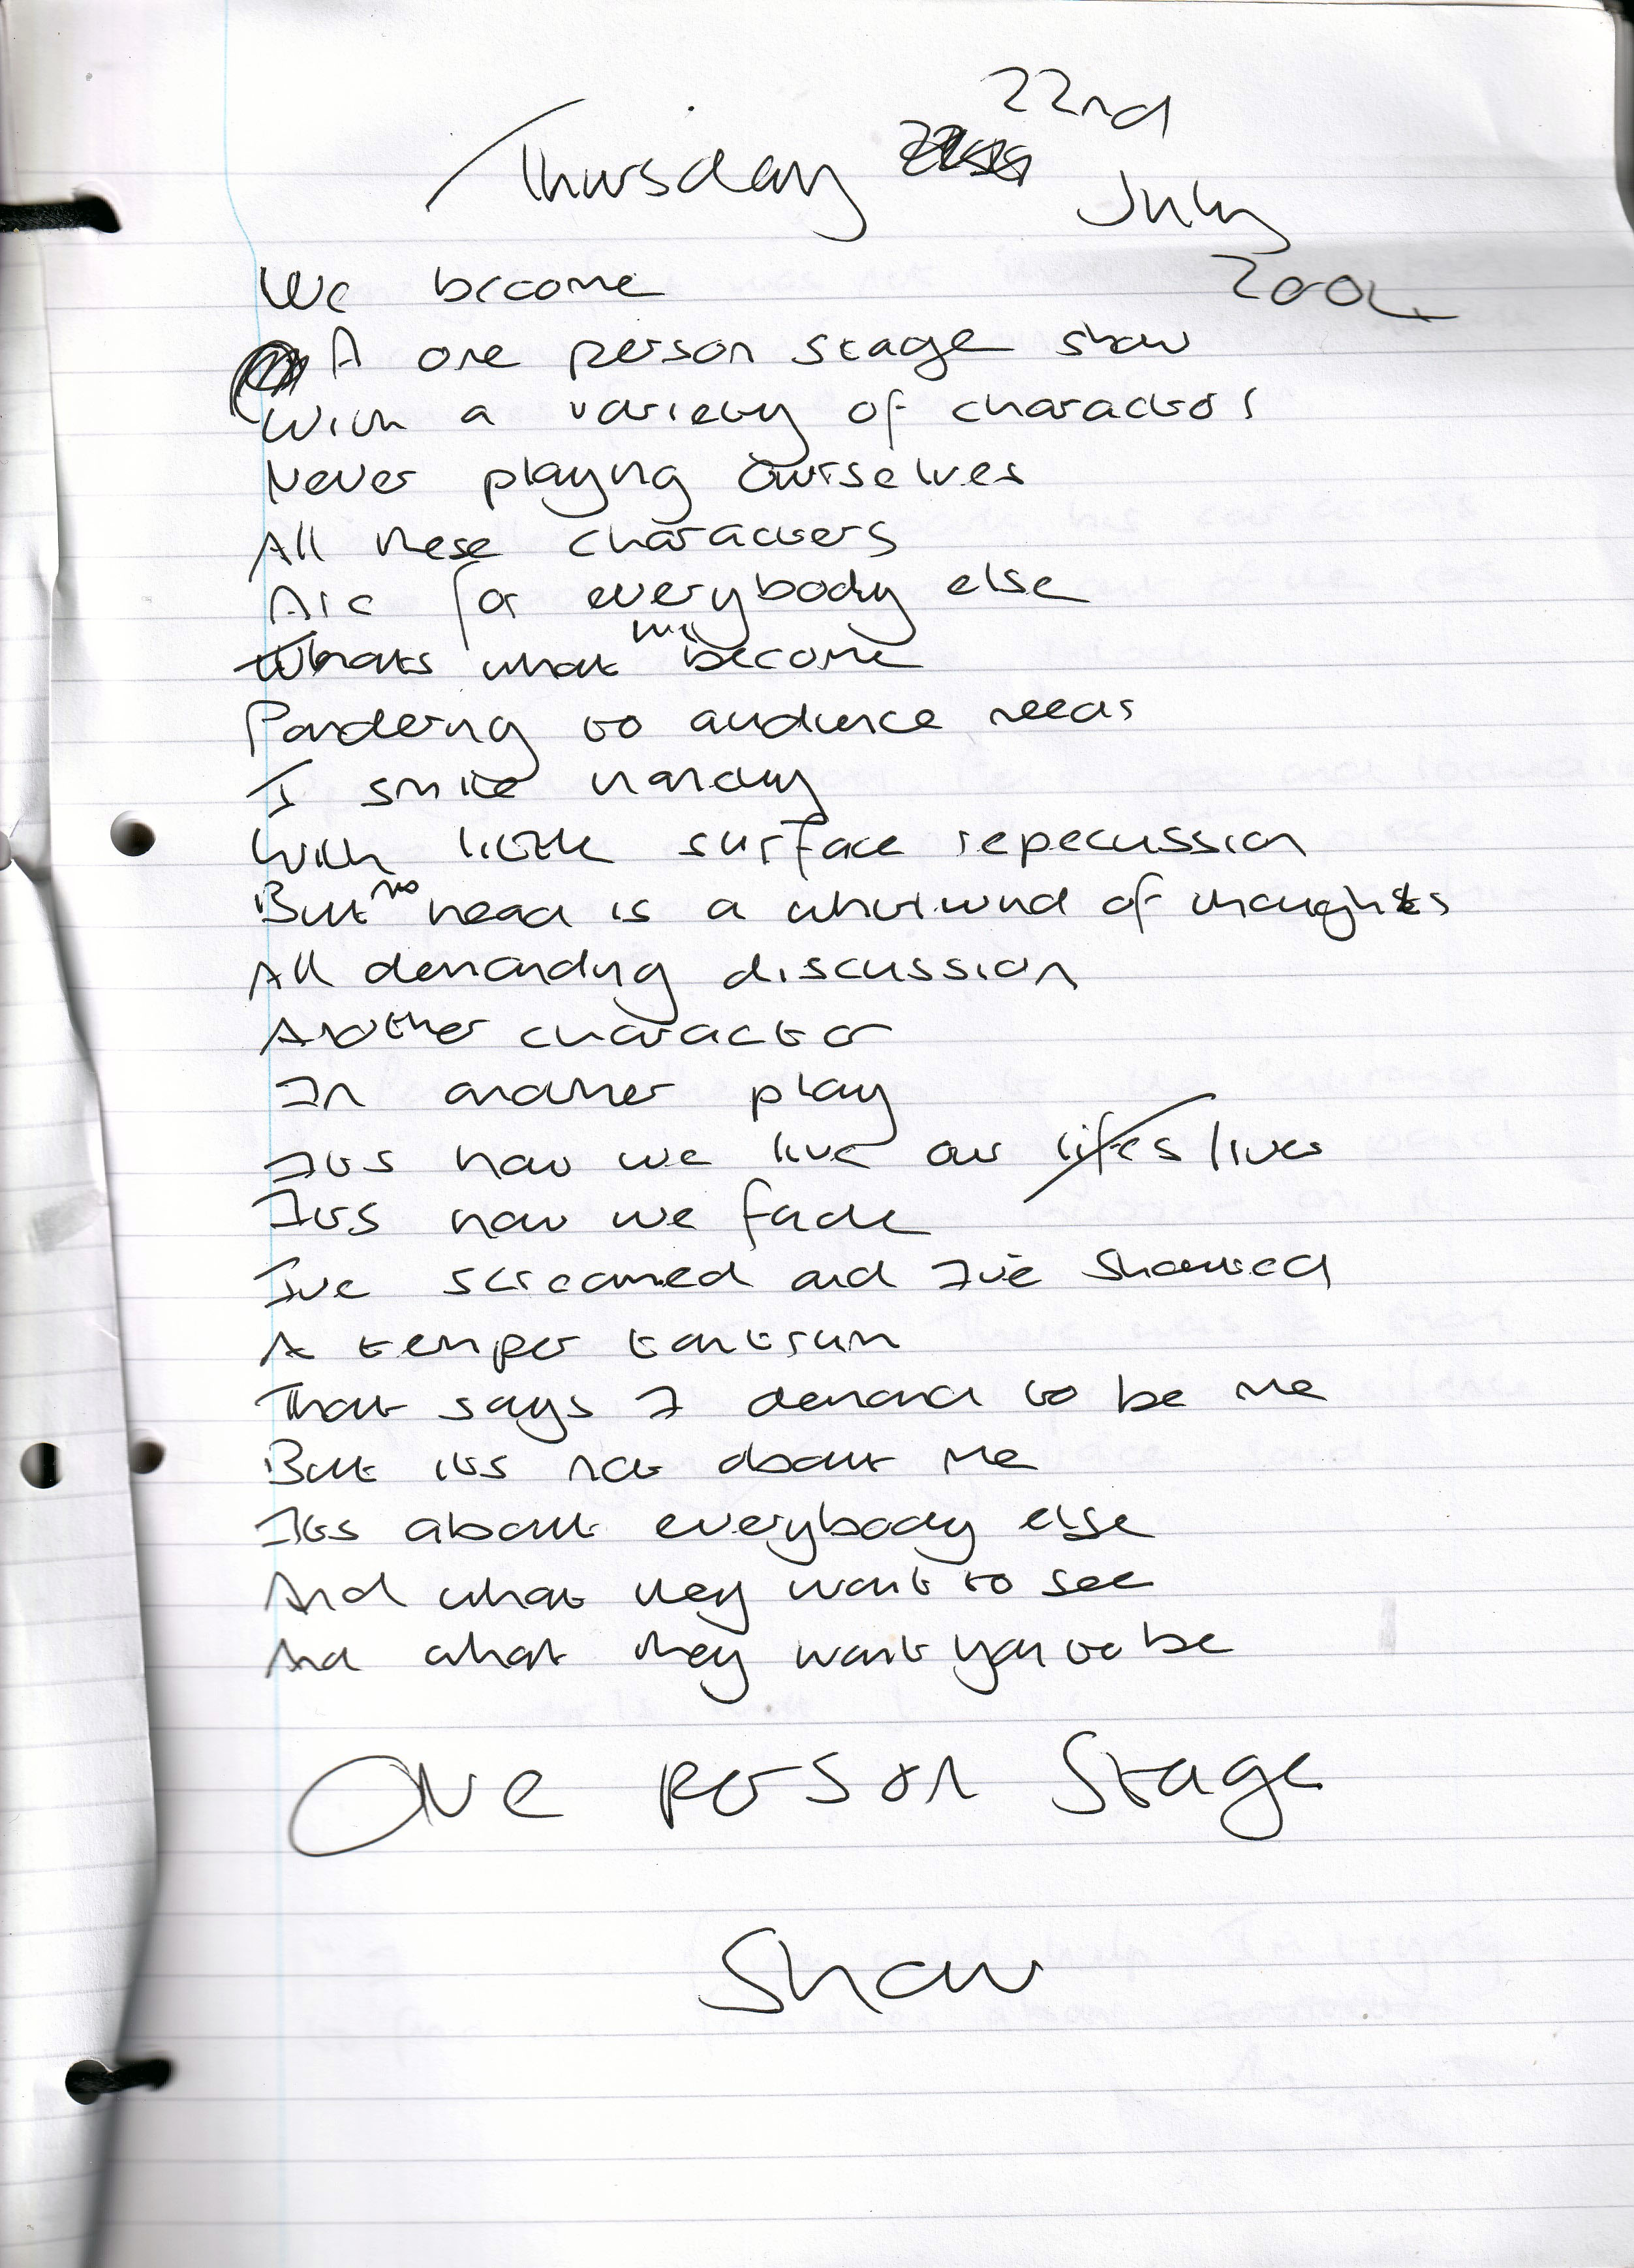 Thursday 22nd
July
2004
We become
A one person stage show
With a variety of characters
Never playing ourselves
All these characters
Are for everybody else
Thats what become
Pandering to audience needs
I smile
With little surface repecussion
But head is a whirlwind of thoughts
All demanding discussion
Another character
In another play
Its how we live our lifes / lives
Its how we fade
Ive screamed and I've shouted
A temper tantrum
That says I demand to be me
But its not about me
Its about everybody else
And what they want to see
And what they want you to be
One person Stage
Show